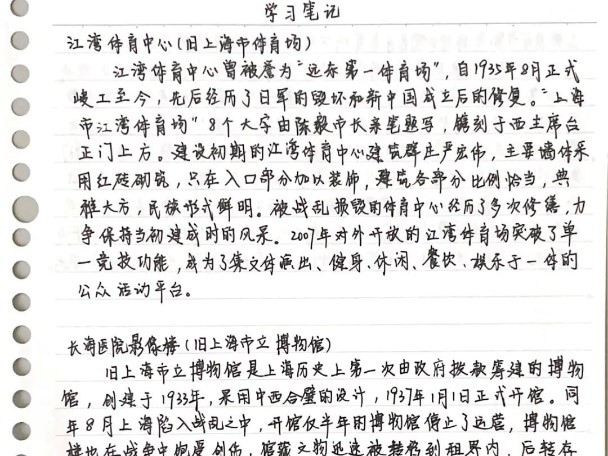 学习笔记
江湾体育中心(旧上海市体育场)
江湾体育中心曾被誉为“远东第一体育场”，自1935年8月正式
竣工至今，先后经历了日军的毁坏和新中国成立后的修复。“上海
市江湾体育场”8个大字由陈毅市长亲笔题写，镌刻于西主席台
正门上方。建设初期的江湾体育中心建筑群庄严宏伟，主要墙体采
用红砖砌筑，只在入口部分加以装饰，建筑各部分比例恰当，典
雅大方，民族形式鲜明。被战乱损毁的体育中心经历了多次修缮，力
争保持当初建成时的风采。2007年对外开放的江湾体育场突破了单
一竞技功能，成为了集文体演出、健身、休闲、餐饮、娱乐于一体的
公众活动平台。
长海医院影像楼(旧上海市立博物馆)
旧上海市立博物馆是上海历史上第一次由政府拨款筹建的博物
馆，创建于1933年，采用中西合璧的设计，1937年1月1日正式开馆。同
年8月上海陷入战乱之中，开馆仅半年闭博物馆停止了运营，博物馆
楼也在战争中饱受创伤，馆藏文物迅速被转移到租界内，后转存